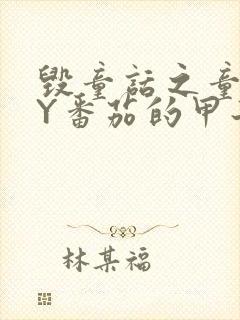 毁童话之童
Y番茄的甲
林某福